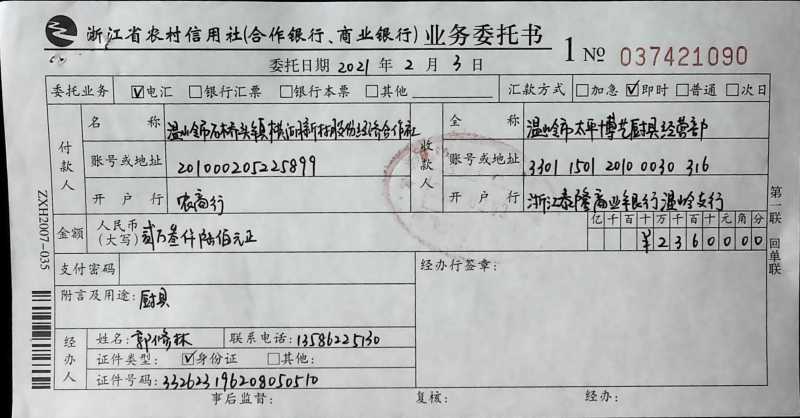 浙江省农村信用社(合作银行、商业银行)业务委托书 1 № 037421090
委托日期 2021 年 2 月 3 日
委托业务 ☑电汇 □银行汇票 □银行本票 □其他 汇款方式 □加急 ☑即时 □普通 □次日
付款人 名称 温岭市石桥头镇横河新村股份经济合作社
账号或地址 201000205225899
开户行 农商行
收款人 全称 温岭市太平博艺厨具经营部
账号或地址 3301 1501 2010 0030 316
开户行 浙江泰隆商业银行温岭支行
金额 人民币(大写) 贰万叁仟陆佰元正
亿千百十万千百十元角分
¥2360000
支付密码
经办行签章:
附言及用途: 厨具
经办人 姓名: 郭修林 联系电话: 13586225130
证件类型: ☑身份证 □其他:
证件号码: 332623196208050510
事后监督: 复核: 经办:
第一联 回单联
ZXH2007-035